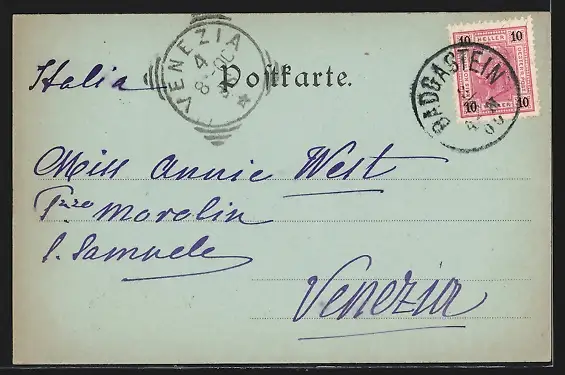 Italia
Postkarte.
VENEZIA
4
8
10 HELLER 10
10 10
BADGASTEIN
Miss Annie West
Pzzo Morolin
S. Samuele
Venezia